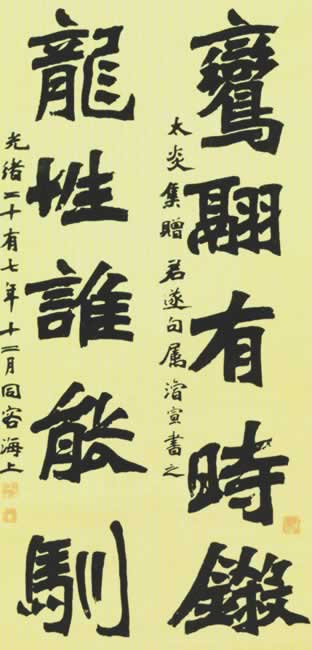 鸞翮有時鎩
太炎集贈君遂句属濬宣書之
龍性誰能馴
光緒二十有七年十二月同客海上